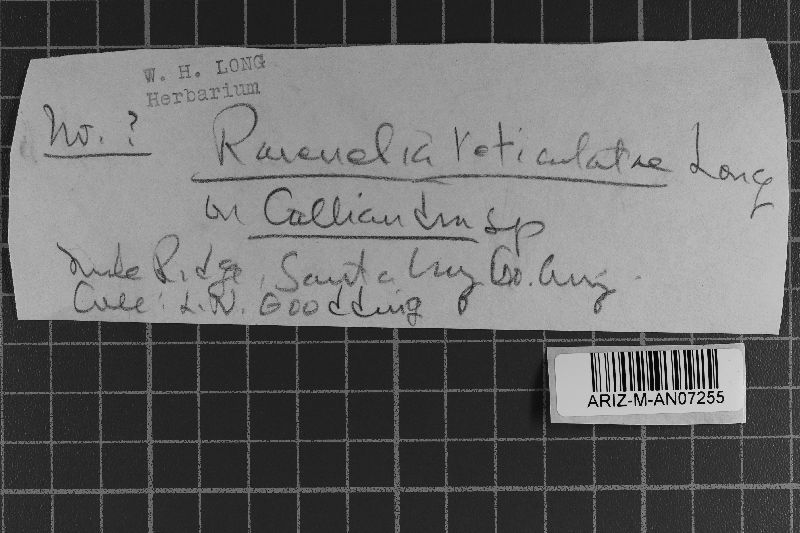 W. H. LONG
Herbarium
No. ?
Ravenelia reticulatae Long
on Calliandra sp
Ridge, Santa Cruz Co. Ariz.
Coll: L.N. Goodding
ARIZ-M-AN07255